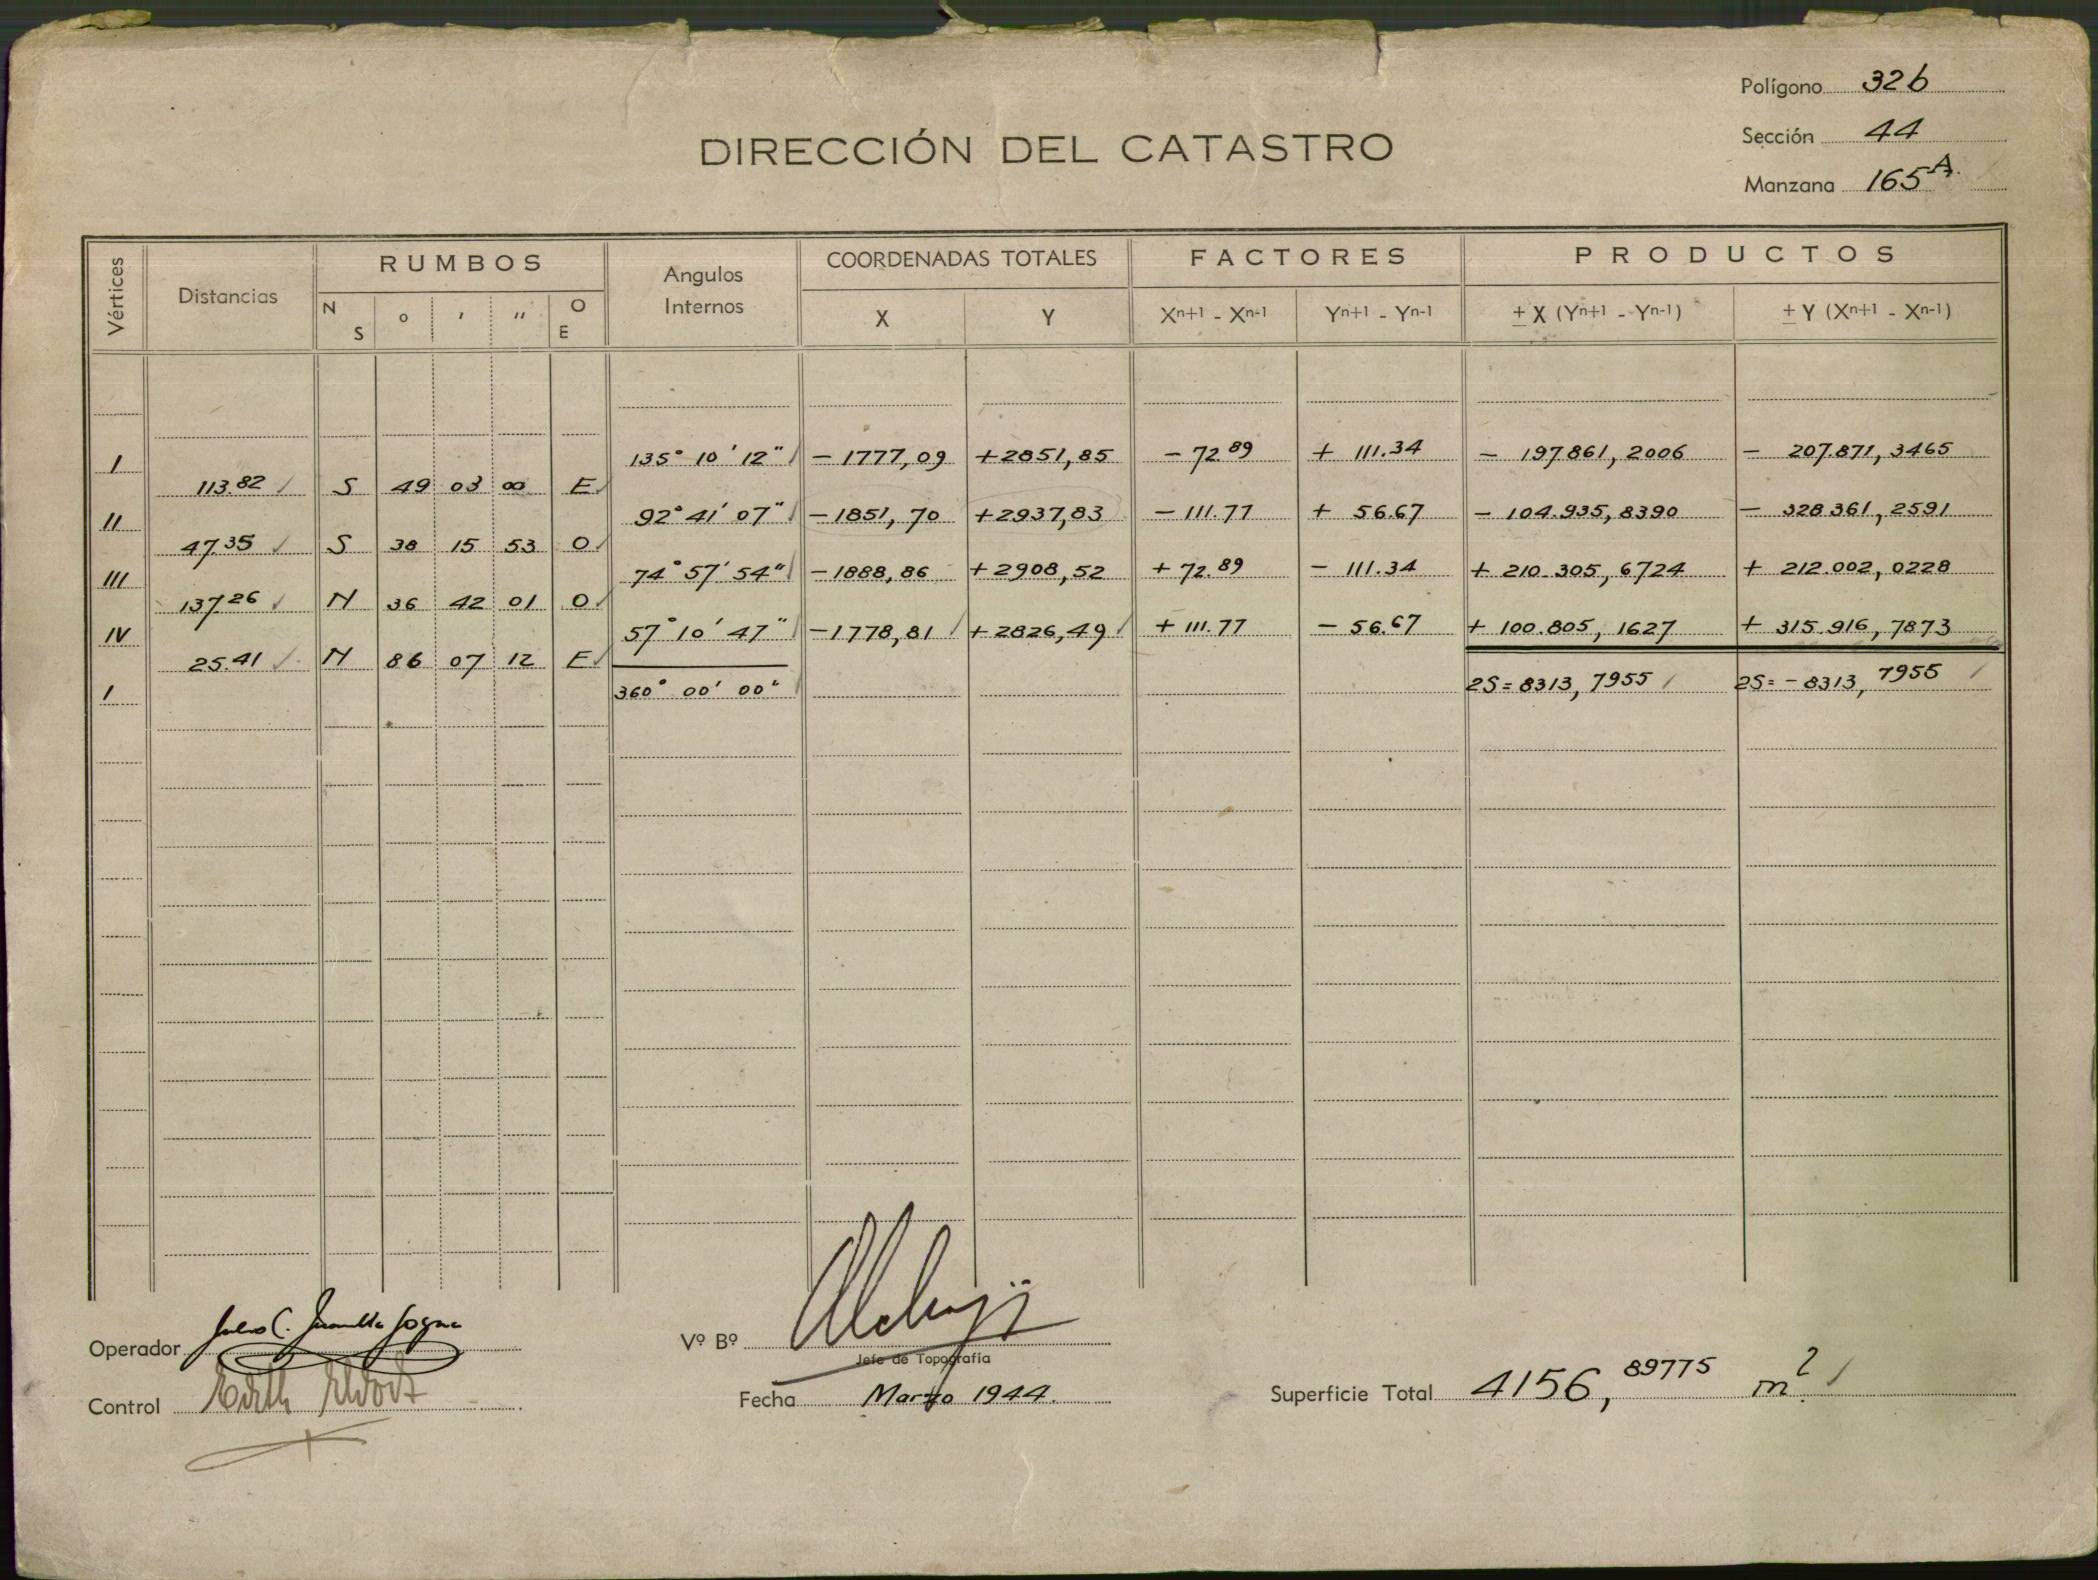 Polígono 32b
DIRECCIÓN DEL CATASTRO
Sección 44
Manzana 165 A.
Vértices Distancias RUMBOS Angulos Internos COORDENADAS TOTALES FACTORES PRODUCTOS
N S ° ' " O E X Y Xn+1 - Xn-1 Yn+1 - Yn-1 ± X (Yn+1 - Yn-1) ± Y (Xn+1 - Xn-1)
I 135° 10' 12" - 1777,09 +2851,85 - 72.89 + 111.34 - 197.861,2006 - 207.871,3465
113.82 S 49 03 00 E
II 92° 41' 07" - 1851,70 +2937,83 - 111.77 + 56.67 - 104.935,8390 - 328.361,2591
47.35 S 38 15 53 O
III 74° 57' 54" - 1888,86 +2908,52 + 72.89 - 111.34 + 210.305,6724 + 212.002,0228
137.26 N 36 42 01 O
IV 57° 10' 47" - 1778,81 +2826,49 + 111.77 - 56.67 + 100.805,1627 + 315.916,7873
25.41 N 86 07 12 E
I 360° 00' 00" 2S = 8313,7955 2S = - 8313,7955
Operador
Vº Bº
Jefe de Topografía
Control
Fecha Marzo 1944.
Superficie Total 4156,89775 m2